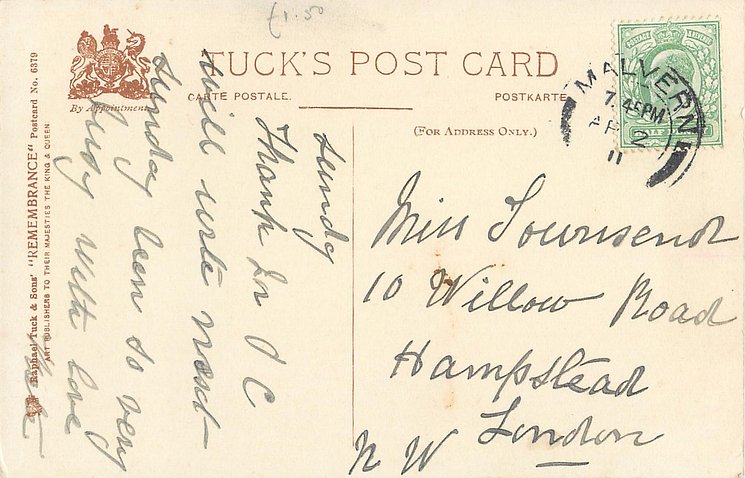 £1.50
TUCK'S POST CARD
CARTE POSTALE.
POSTKARTE
(FOR ADDRESS ONLY.)
By Appointment
Raphael Tuck & Sons' "REMEMBRANCE" Postcard No. 6379
ART PUBLISHERS TO THEIR MAJESTIES THE KING & QUEEN
POSTAGE & REVENUE
MALVERN
7.45PM
AP 2
11
Sunday
Thank for P C
will write next
Sunday been so very
busy with love
Miss Townsend
10 Willow Road
Hampstead
London
N W